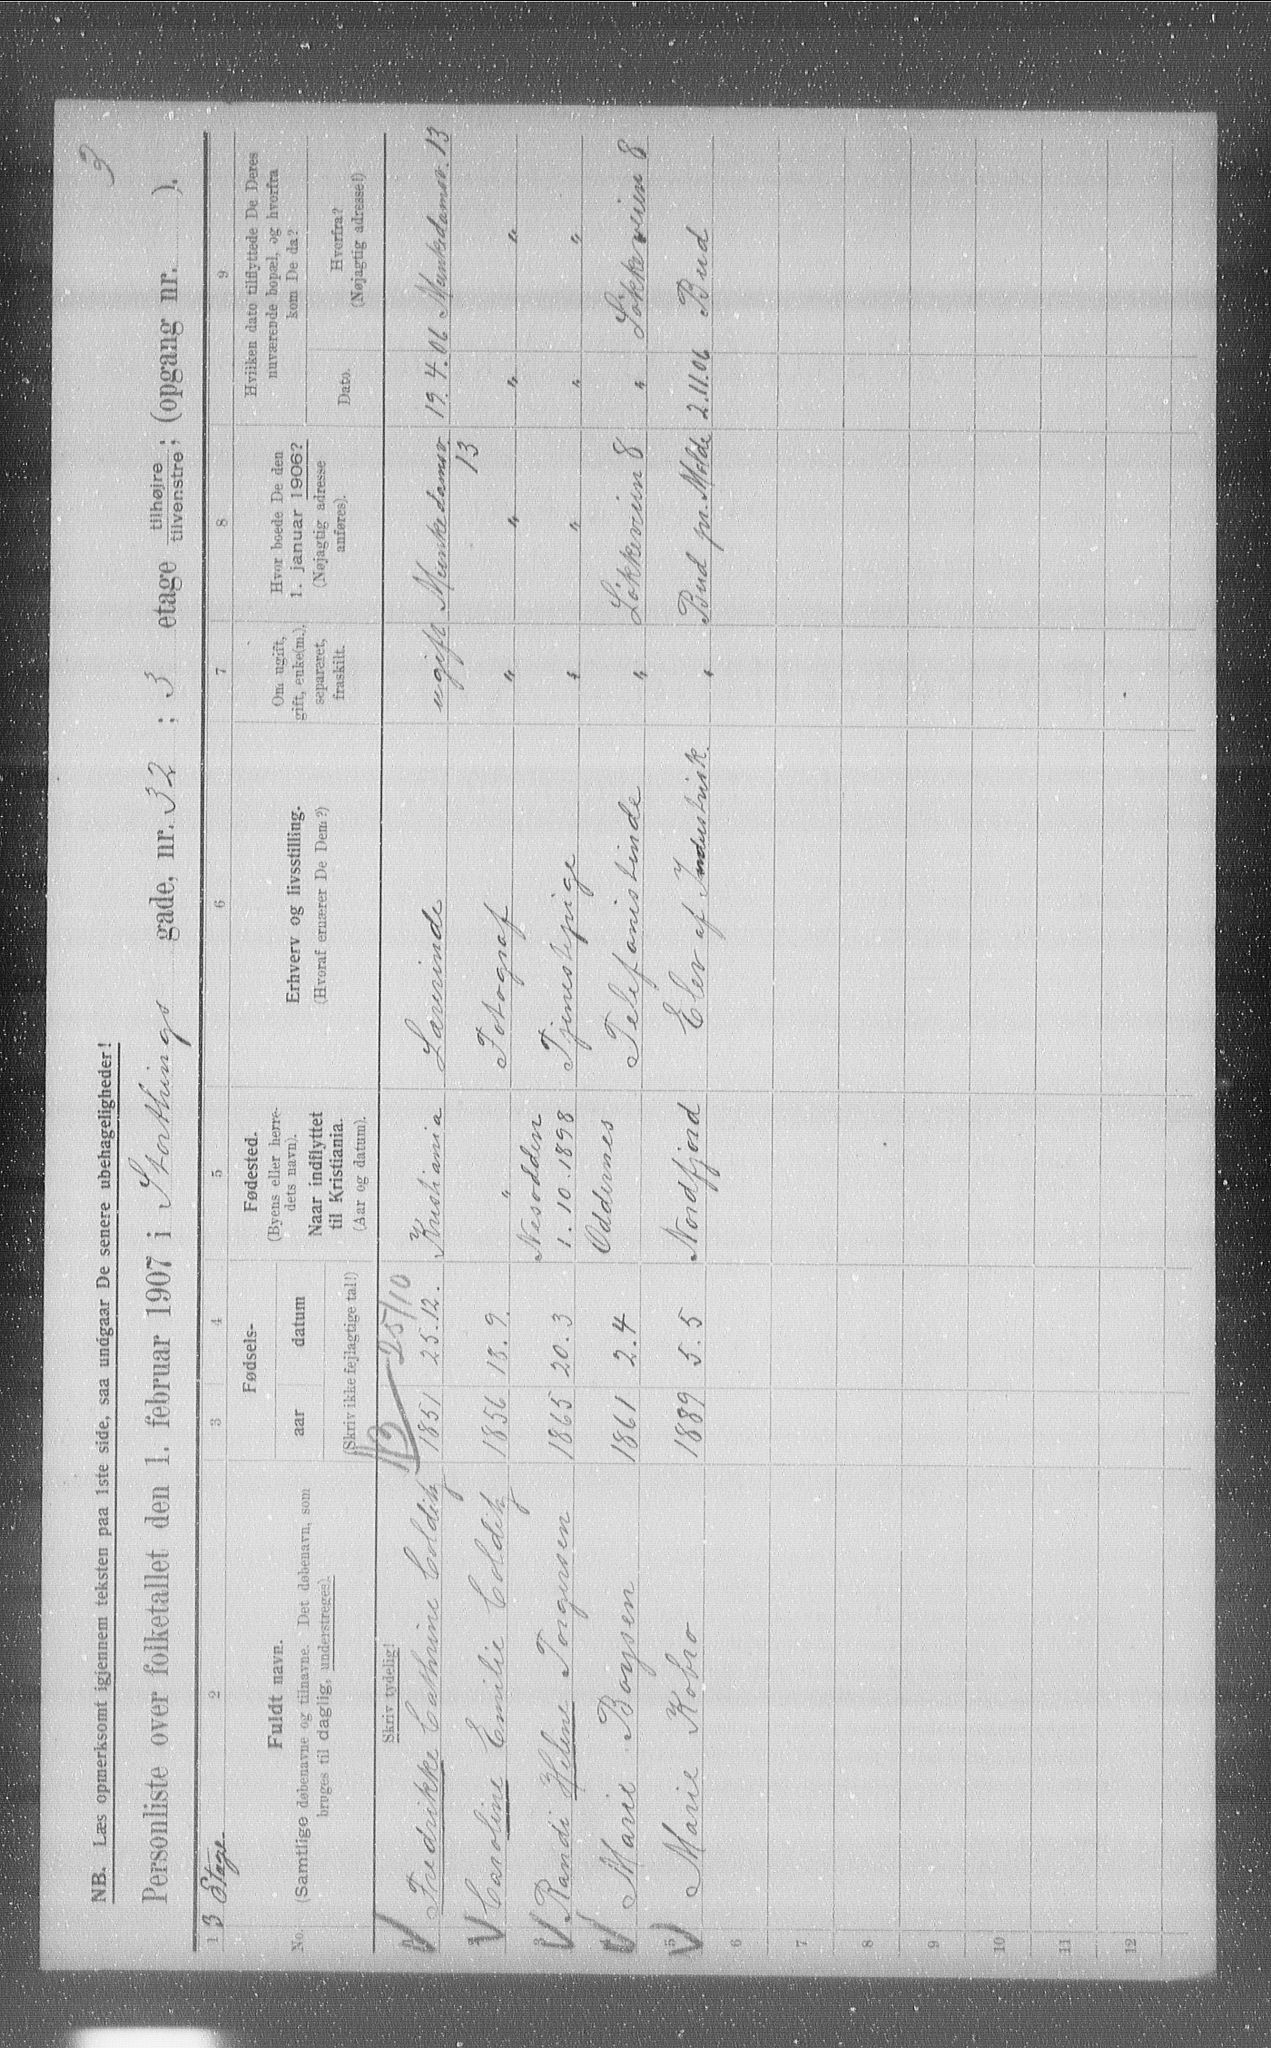 3
NB. Læs opmerksomt igjennem teksten paa 1ste side, saa undgaar De senere ubehageligheder!
Personliste over folketallet den 1. februar 1907 i Storthings gade, nr. 32 ; 3 etage tilhøjre tilvenstre ; (opgang nr. ).
3 Etage
1 2 3 4 5 6 7 8 9
No.
Fuldt navn.
(Samtlige døbenavne og tilnavne. Det døbenavn, som
bruges til daglig, understreges).
Fødsels-
aar datum
(Skriv ikke fejlagtige tal!)
Fødested.
(Byens eller herre-
dets navn).
Naar indflyttet
til Kristiania.
(Aar og datum).
Erhverv og livsstilling.
(Hvoraf ernærer De Dem?)
Om ugift,
gift, enke(m.),
separeret,
fraskilt.
Hvor boede De den
1. januar 1906?
(Nøjagtig adresse
anføres).
Hvilken dato tilflyttede De Deres
nuværende bopæl, og hvorfra
kom De da?
Dato.
Hvorfra?
(Nøjagtig adresse!)
Skriv tydelig!
25/10
1 Fredrikke Cathrine Colditz 1851 25.12. Kristiania Lærerinde ugift Munkedamsv. 13 19.4.06 Munkedamsv. 13
2 Caroline Emilie Colditz 1856 18.9. " Fotograf " " " "
3 Randi Helene Torgersen 1865 20.3 Nesodden 1.10.1898 Tjenestepige " " " "
4 Marie Boysen 1861 2.4 Oddernes Telefonistinde " Løkkeveien 8 " Løkkeveien 8
5 Marie Kobro 1889 5.5 Nordfjord Elev af Industrisk. " Bud pr. Molde 2.11.06 Bud
6
7
8
9
10
11
12